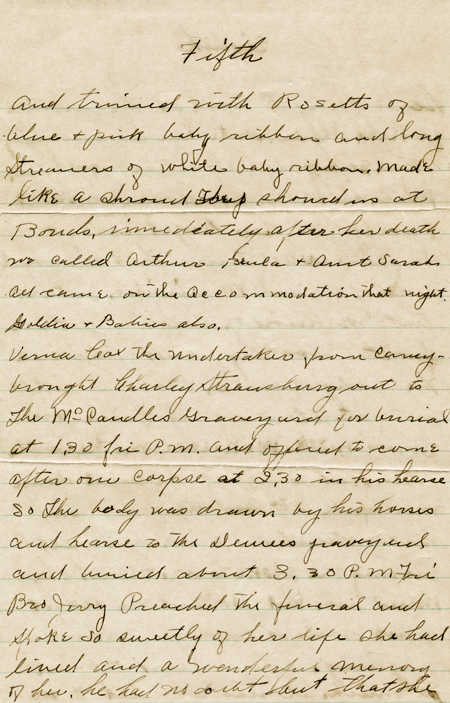 Fifth
and trimed with Rosetts of
blue + pink baby ribbon and long
streamers of white baby ribbon. made
like a shroud they showed us at
Bonds. immediately after her death
we called Arthur + Aunt Sarah
all came on the accommodation that night.
Goldia + Babies also.
Verna Cox the undertaker from Caney
brought Charley Strawsburg out to
the McCandles Graveyard for burial
at 1.30 fri P.M. and offered to come
after our corpse at 2,30 in his hearse
So the body was drawn by his horses
and hearse to the graveyard
and buried about 3.30 P.M Fri
Bro Jerry Preached the funeral and
spoke so sweetly of her life she had
lived and a wonderful memory
of her. he had no doubt but that she